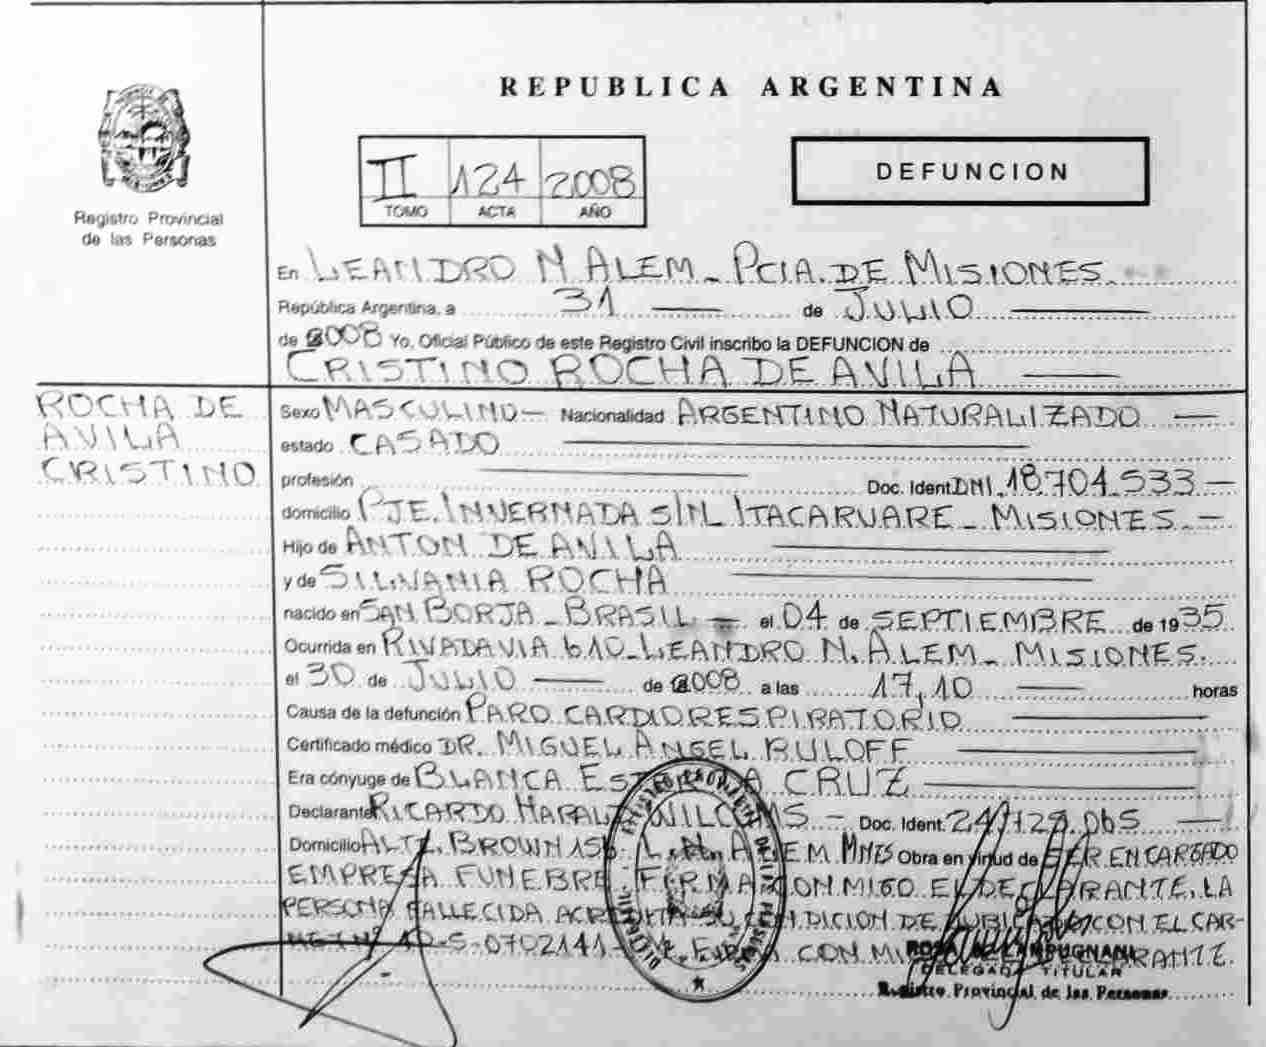 REPUBLICA ARGENTINA
II 124 2008
TOMO ACTA AÑO
DEFUNCION
Registro Provincial
de las Personas
En LEANDRO N ALEM - PCIA. DE MISIONES
República Argentina, a 31 de JULIO
de 2008 Yo, Oficial Público de este Registro Civil inscribo la DEFUNCION de
CRISTINO ROCHA DE AVILA
ROCHA DE
AVILA
CRISTINO
Sexo MASCULINO - Nacionalidad ARGENTINO NATURALIZADO
estado CASADO
profesión Doc. Ident. DNI. 18.704.533 -
domicilio PJE. INVERNADA S/N ITACARUARE - MISIONES -
Hijo de ANTON DE AVILA
y de SILNANIA ROCHA
nacido en SAN BORJA - BRASIL - el 04 de SEPTIEMBRE de 1935
Ocurrida en RIVADAVIA 610 - LEANDRO N. ALEM - MISIONES.
el 30 de JULIO de 2008 a las 17,10 horas
Causa de la defunción PARO CARDIORESPIRATORIO
Certificado médico DR. MIGUEL ANGEL BULOFF
Era cónyuge de BLANCA CRUZ
Declarante RICARDO - Doc. Ident.
Domicilio ALTE. BROWN 156 L. N. ALEM MNES Obra en virtud de SER ENCARGADO
EMPRESA FUNEBRE FIRMA CONMIGO EL DECLARANTE. LA
PERSONA FALLECIDA ACREDITA SU CONDICION DE JUBILADO CON EL CAR-
NET Nº 10-5-0702141- CON
DELEGADA TITULAR
Registro Provincial de las Personas